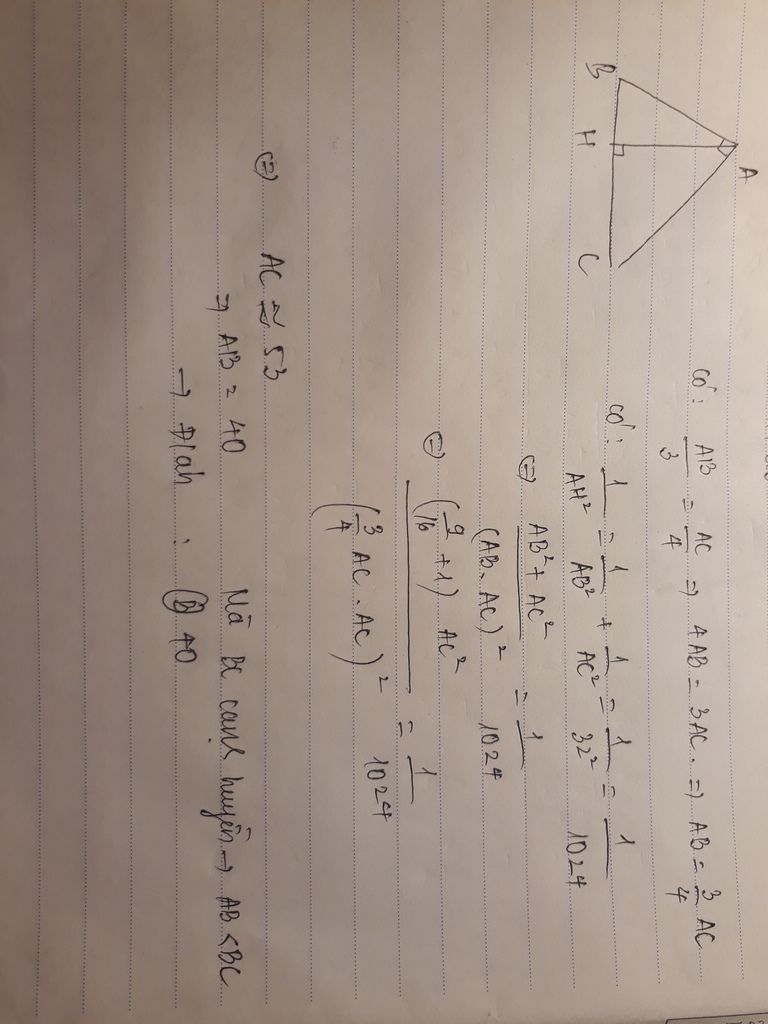 A
B
H
C
có: AB/3 = AC/4 => 4AB = 3AC. => AB = 3/4 AC
có: 1/AH² = 1/AB² + 1/AC² = 1/32² = 1/1024
(=) (AB² + AC²)/(AB. AC)² = 1/1024
(=) ((9/16 + 1) AC²)/(3/4 AC. AC)² = 1/1024
(=) AC ≈ 53
=> AB = 40 Mà BC cạnh huyền -> AB < BC
-> Đ/án : (B) 40